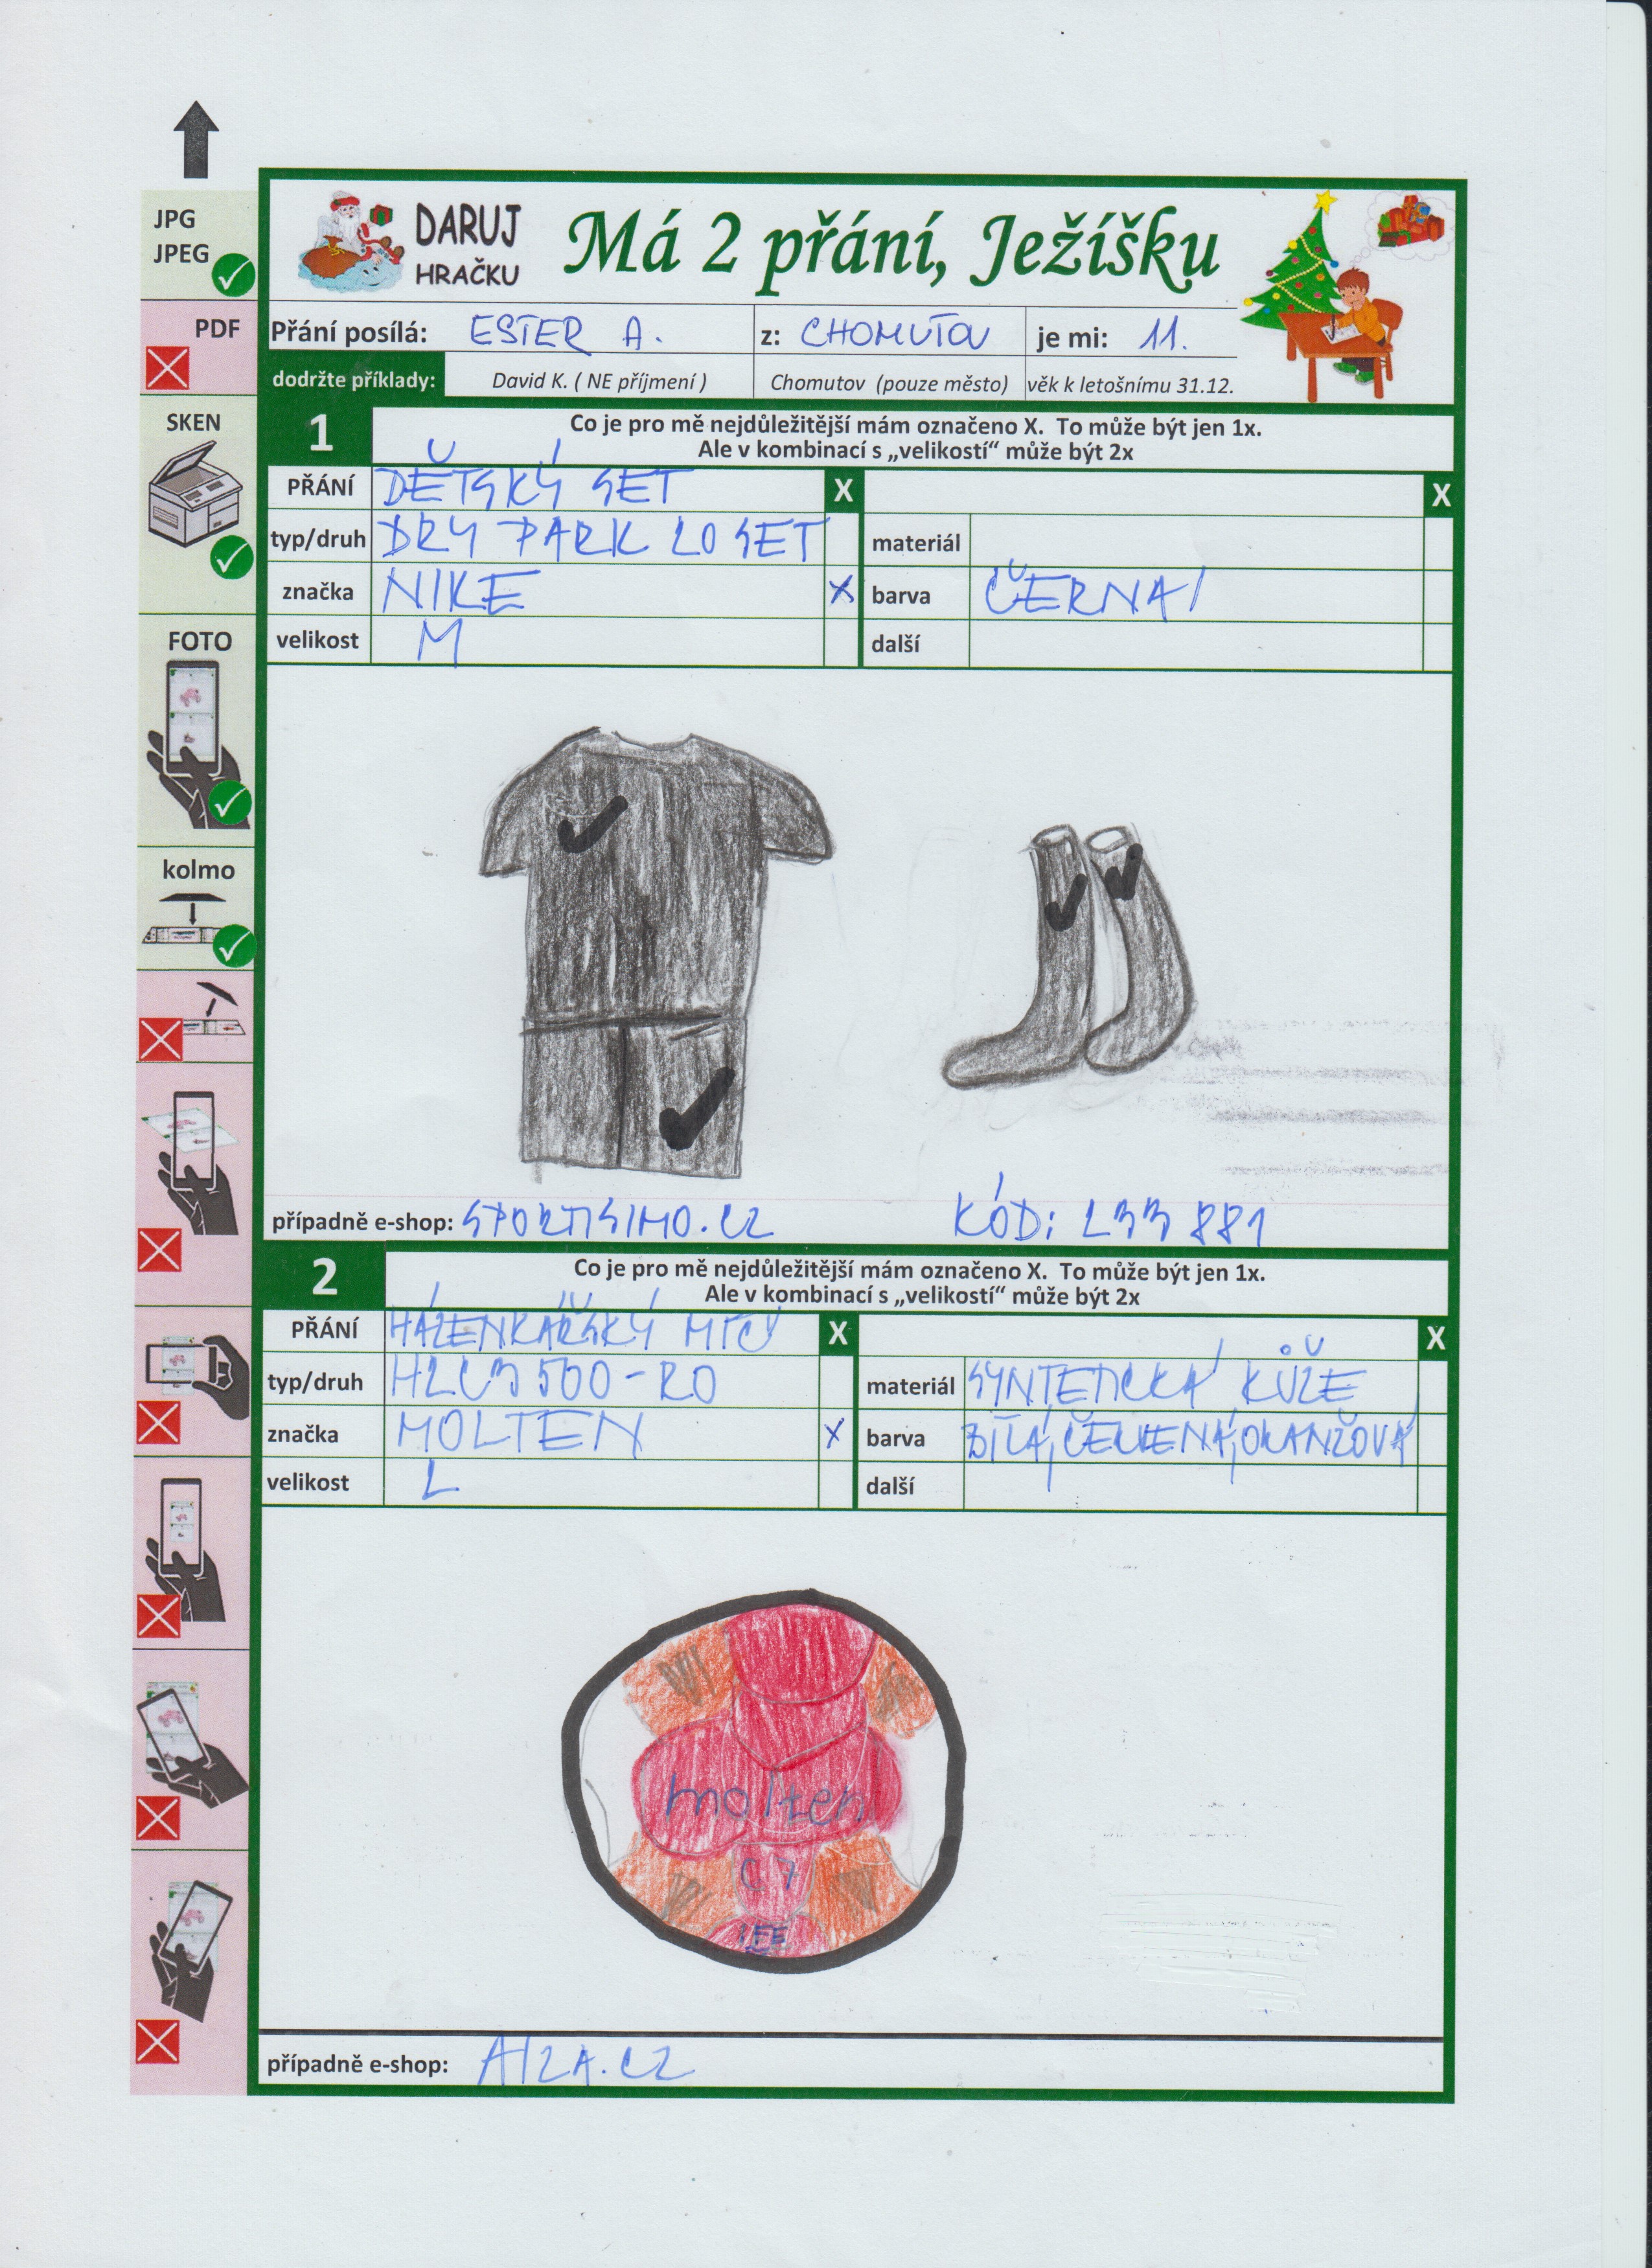 JPG
JPEG
PDF
SKEN
FOTO
kolmo
DARUJ
HRAČKU
Má 2 přání, Ježíšku
Přání posílá: ESTER A. z: CHOMUTOV je mi: 11.
dodržte příklady: David K. ( NE příjmení ) Chomutov (pouze město) věk k letošnímu 31.12.
1
Co je pro mě nejdůležitější mám označeno X. To může být jen 1x.
Ale v kombinací s „velikostí“ může být 2x
PŘÁNÍ DĚTSKÝ SET X X
typ/druh DRY PARK 20 SET materiál
značka NIKE X barva ČERNÁ
velikost M další
případně e-shop: SPORTISIMO.CZ KÓD: 233 881
2
Co je pro mě nejdůležitější mám označeno X. To může být jen 1x.
Ale v kombinací s „velikostí“ může být 2x
PŘÁNÍ HÁZENKÁŘSKÝ MÍČ X X
typ/druh H2C3500-RO materiál SYNTETICKÁ KŮŽE
značka MOLTEN X barva BÍLÁ, ČERVENÁ, ORANŽOVÁ
velikost 2 další
molten
C7
případně e-shop: AlZA.CZ